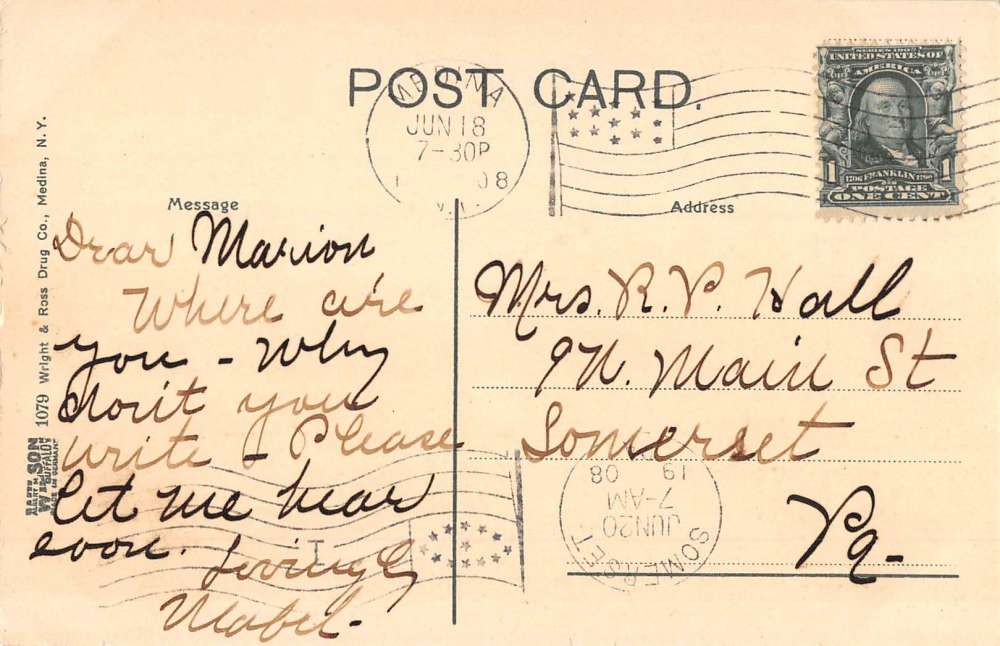 POST CARD.
MEDINA
JUN 18
7-30P
1 08
N.Y.
SERIES 1902
UNITED STATES OF
AMERICA
1 1
1706 FRANKLIN 1790
POSTAGE
ONE CENT
Message
Address
Dear Marion
Where are
you - Why
don't you
write - Please
let me hear
soon.
Lovingly
Mabel-
Mrs. R. P. Hall
9 N. Main St
Somerset
Pa-
1079 Wright & Ross Drug Co., Medina, N. Y.
WILSON
BUFFALO
MADE IN GERMANY
SOMERSET
JUN 20
7-AM
19 08